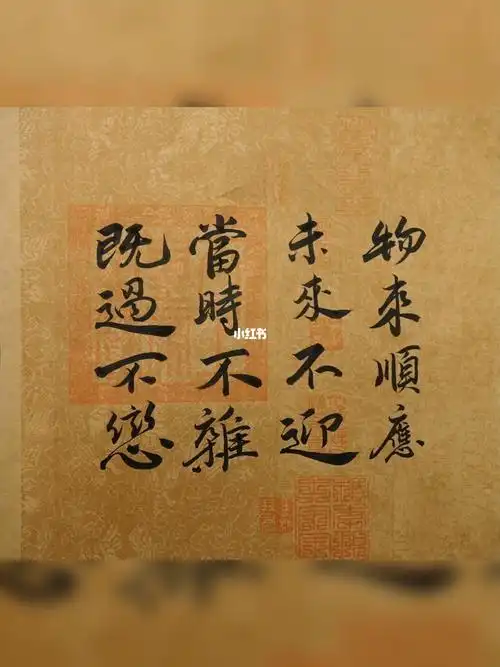 物來順應
未來不迎
當時不雜
既過不戀
小红书